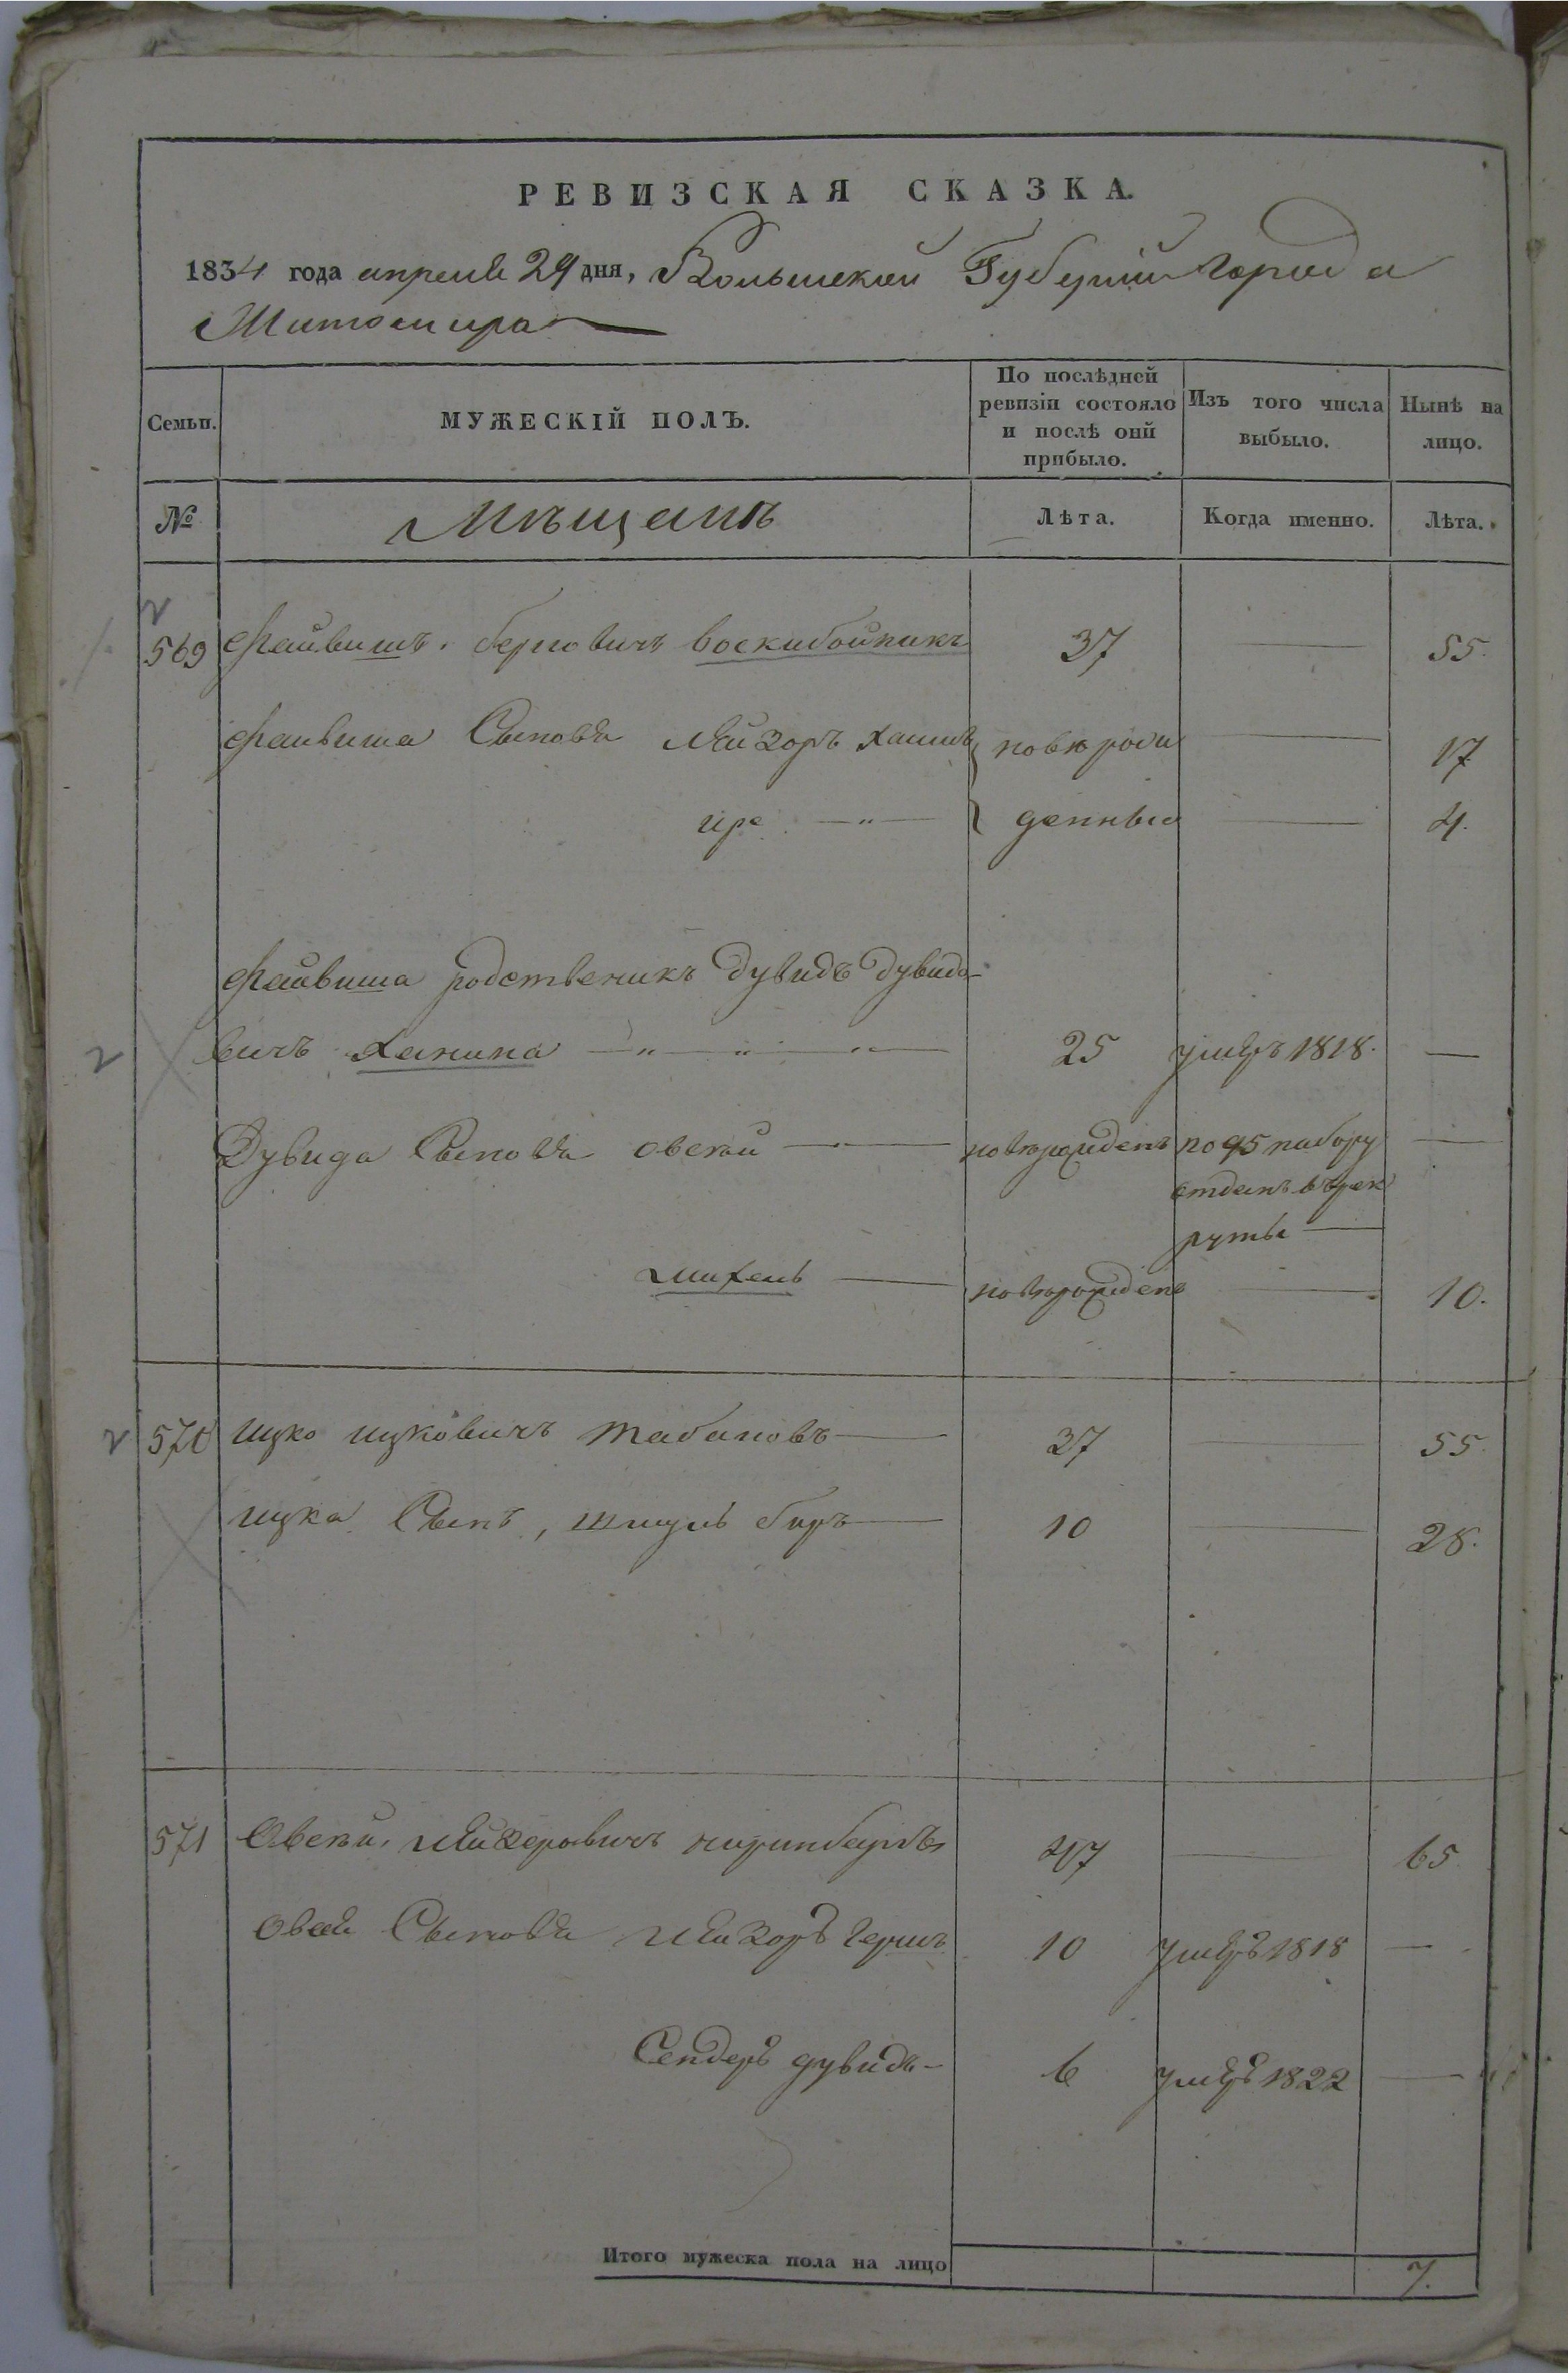 РЕВИЗСКАЯ СКАЗКА.
1834 года апреля 29 дня, Волынской Губернии города
Житомира
Семьи. МУЖЕСКІЙ ПОЛЪ. По послѣдней ревизіи состояло и послѣ оной прибыло. Изъ того числа выбыло. Нынѣ на лицо.
№ Мѣщанъ Лѣта. Когда именно. Лѣта.
569 Файвишъ Берковичъ Воскибойникъ 37 — 55.
Файвиша Сыновья Лейзоръ Хаимъ новорож — 17
денные — 4.
Файвиша родственикъ Дувидъ Дувидо-
вичъ Ханина 25 умеръ 1818. —
Дувида Сыновья Овсей новорожденъ по 95 набору —
отданъ въ рек
руты
Михель новорожденъ — 10.
570 Ицко Ицковичъ Табановъ 37 — 55.
Ицка Сынъ, Шмуль Беръ 10 — 28.
571 Овсей Лейзеровичъ 47 — 65
Овсея Сыновья Лейзоръ Гершъ 10 умеръ 1818 —
Сендеръ Дувидъ 6 умеръ 1822 —
Итого мужеска пола на лицо 7.